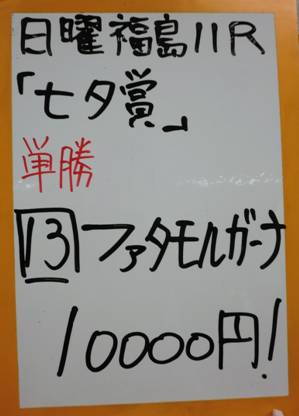 日曜福島11R
「七夕賞」
単勝
13ファタモルガーナ
10000円!